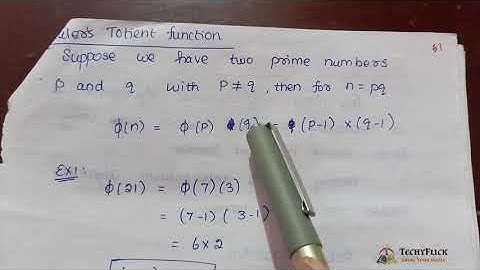 uler's Totient function
61
Suppose we have two prime numbers
p and q with p ≠ q, then for n = pq
ϕ(n) = ϕ(p) ϕ(q) = ϕ(p-1) × (q-1)
Ex1:
ϕ(21) = ϕ(7)(3)
= (7-1)(3-1)
= 6×2
TECHYFLICK